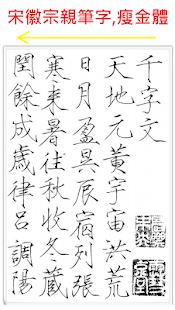 宋徽宗親筆字,瘦金體
千字文
天地元黃宇宙洪荒
日月盈昃辰宿列張
寒來暑往秋收冬藏
閏餘成歲律呂調陽